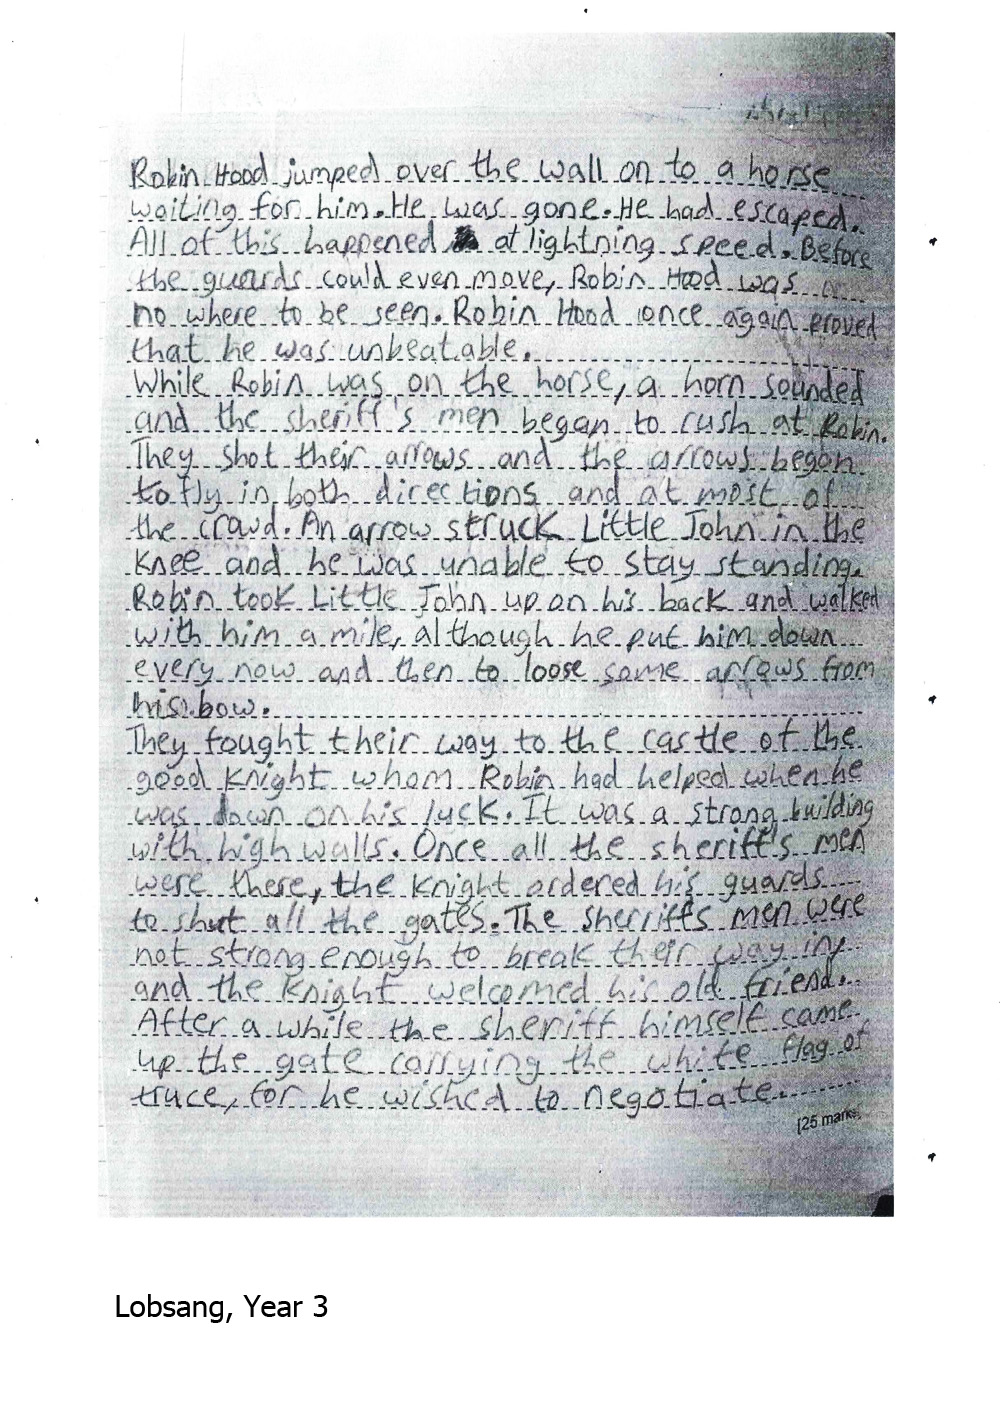 Robin Hood jumped over the wall on to a horse
waiting for him. He was gone. He had escaped.
All of this happened at lightning speed. Before
the guards could even move, Robin Hood was
no where to be seen. Robin Hood once again proved
that he was unbeatable.
While Robin was on the horse, a horn sounded
and the sheriff's men began to rush at Robin.
They shot their arrows and the arrows began
to fly in both directions and at most of
the crowd. An arrow struck Little John in the
knee and he was unable to stay standing.
Robin took Little John up on his back and walked
with him a mile, although he put him down
every now and then to loose some arrows from
his bow.
They fought their way to the castle of the
good knight whom Robin had helped when he
was down on his luck. It was a strong building
with high walls. Once all the sheriff's men
were there, the knight ordered his guards
to shut all the gates. The sherriffs men were
not strong enough to break their way in,
and the knight welcomed his old friend.
After a while the sheriff himself came
up the gate carrying the white flag of
truce, for he wished to negotiate.
[25 marks]
Lobsang, Year 3